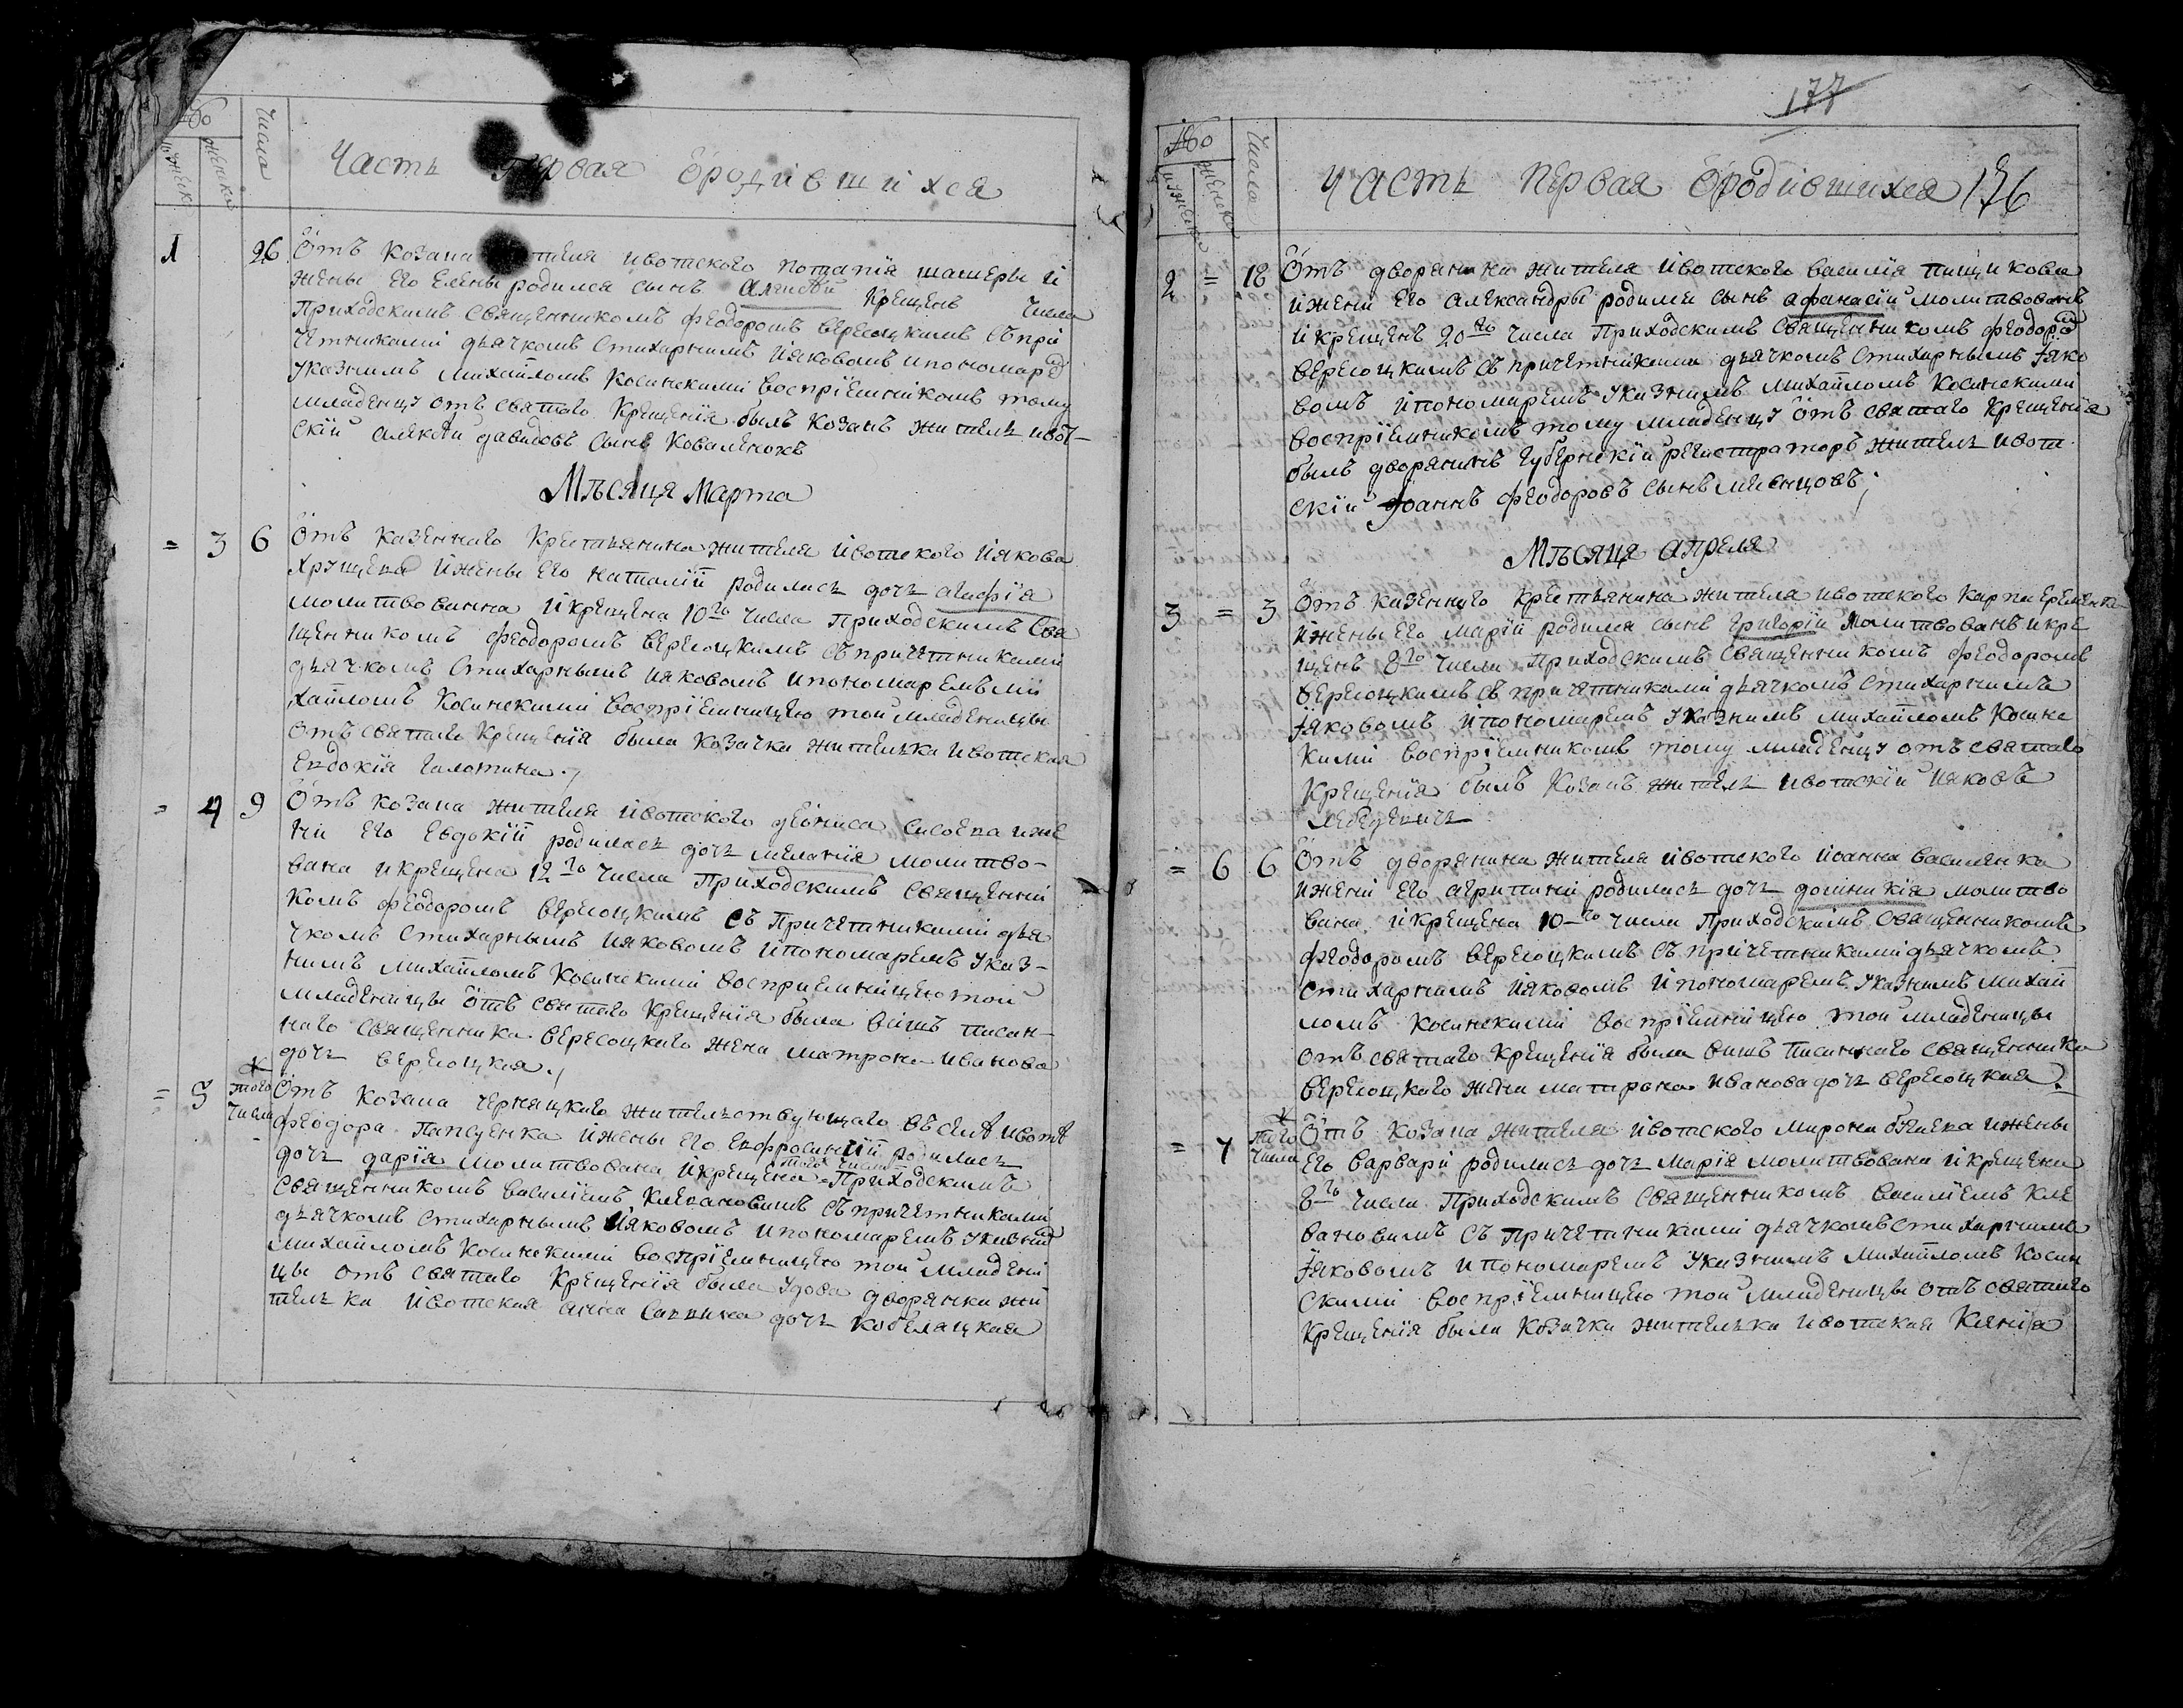 Число
Часть Первая ѿродившихся
1 26 Отъ козака жителя ивотского потапія шатеры и
жены его елены родился сынъ Алексѣй крещенъ числа
Приходскимъ Священникомъ Феодоромъ вересоцкимъ съ при
четниками дьячкомъ Стихарнымъ Иаковомъ и пономаре
указнымъ михайломъ косинскими воспріемникомъ тому
младенцу отъ святаго крещенія былъ козакъ житель ивот-
скій алексѣй давидовъ сынъ коваленокъ
Мѣсяца Марта
= 3 6 Отъ казеннаго крестьянина жителя ивотского Иакова
Хрущева и жены его наталіи родилась дочь агафія
молитвованна и крещена 10го числа Приходскимъ Свя
щенникомъ Феодоромъ вересоцкимъ съ причетниками
дьячкомъ Стихарнымъ иаковомъ и пономаремъ ми
хайломъ Косинскими воспріемницею той младеницы
отъ святаго крещенія была козачка жителька ивотская
евдокія
= 4 9 Отъ козака жителя ивотского деониса сисоева и же
ни его евдокіи родилась дочь меланія молитво-
вана и крещена 12го числа Приходскимъ Священни
комъ Феодоромъ вересоцкимъ съ Причетниками дья
чкомъ Стихарнымъ иаковомъ и пономаремъ указ-
нимъ михайломъ Косинскими воспріемницею той
младеницы отъ святаго крещенія была вишъ писан-
наго Священника вересоцкаго жена матрона иванова
дочь вересоцкая
= 5 того числа Отъ козака чернацкаго жительствующаго въ селѣ ивотѣ
феодора Папсуенка и жены его евфросиніи родилась
дочь дарія молитвована и крещена того числа Приходскимъ
Священникомъ василіемъ клевановимъ съ причетниками
дьячкомъ Стихарнымъ Иаковомъ и пономаремъ указним
михайломъ косинскими воспріемницею той младени
цы отъ святаго крещенія была удова дворянка жи
телька ивотская анна савина дочь кобеляцкая
177
Число
Часть первая ѿродившихся 176
2 = 18 Отъ дворянина жителя ивотского василія пищикова
и жени его александры родился сынъ афанасій молитвованъ
и крещенъ 20го числа Приходскимъ Священникомъ феодором
вересоцкимъ съ причетниками дьячкомъ стихарнымъ Iако
вомъ и пономаремъ указнимъ михайломъ косинскими
воспріемникомъ тому младенцу отъ святаго крещенія
былъ дворянинъ Губернскій регистраторъ житель ивот
скій Iоаннъ феодоровъ сынъ
Мѣсяца апреля
3 = 3 Отъ казенного крестьянина жителя ивотского карпа еременка
и жены его маріи родился сынъ григорій молитвованъ и кре
щенъ 8го числа Приходскимъ Священникомъ феодоромъ
вересоцкимъ съ причетниками дьячкомъ Стихарнимъ
Iаковомъ и пономаремъ указнимъ михайломъ косинс
кими воспріемникомъ тому младенцу отъ святаго
крещенія былъ козакъ житель ивотскій иаковъ
лебедевичъ
= 6 6 Отъ дворянина жителя ивотского иоанна василенка
и жени его агрипини родилась дочь домникія молитво
вана и крещена 10го числа Приходскимъ Священникомъ
феодоромъ вересоцкимъ съ причетниками дьячкомъ
стихарнимъ Иаковомъ и пономаремъ указнимъ михай
ломъ косинскими воспріемницею той младеницы
отъ святаго крещенія была вишъ Писаннаго священника
вересоцкаго жена матрона иванова дочь вересоцкая
= 7 того числа Отъ козака жителя ивотского мирона и жены
его варвари родилась дочь марія молитвована и крещена
8го числа Приходскимъ Священникомъ василіемъ кле
вановимъ съ Причетниками дьячкомъ стихарнимъ
Iаковомъ и пономаремъ указнимъ михайломъ косин
скими воспріемницею той младеницы отъ святаго
крещенія была козачка жителька ивотская ксенія